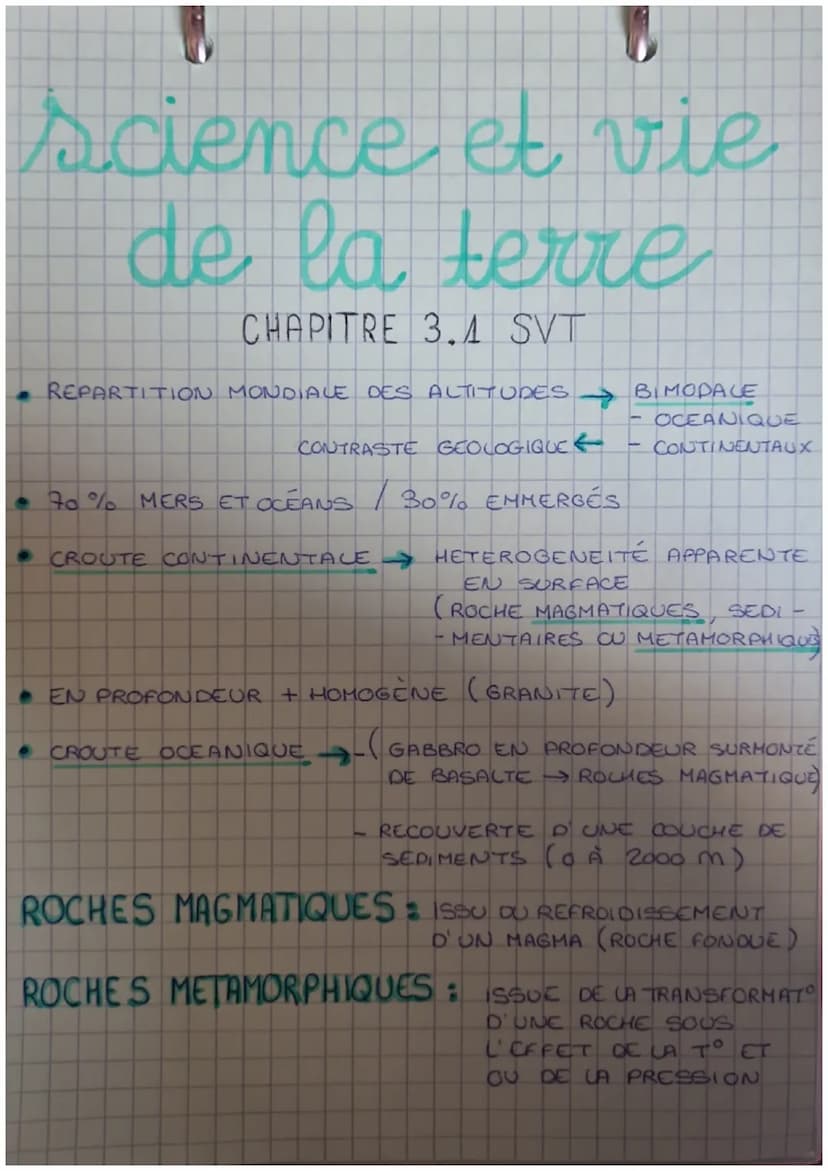 science et vie
de la terre
CHAPITRE 3.1 SVT
• REPARTITION MONDIALE DES ALTITUDES → BIMODALE
- OCEANIQUE
CONTRASTE GEOLOGIQUE ← - CONTINENTAUX
• 70% MERS ET OCÉANS / 30% EMMERGÉS
• CROUTE CONTINENTALE → HETEROGENEITÉ APPARENTE
EN SURFACE
(ROCHE MAGMATIQUES, SEDI-
-MENTAIRES OU METAMORPHIQUES)
• EN PROFONDEUR + HOMOGÈNE (GRANITE)
• CROUTE OCEANIQUE → -( GABBRO EN PROFONDEUR SURMONTÉ
DE BASALTE → ROCHES MAGMATIQUE)
- RECOUVERTE D'UNE COUCHE DE
SEDIMENTS (0 À 2000 m)
ROCHES MAGMATIQUES : ISSU DU REFROIDISSEMENT
D'UN MAGMA (ROCHE FONDUE)
ROCHES METAMORPHIQUES : ISSUE DE LA TRANSFORMAT°
D'UNE ROCHE SOUS
L'EFFET DE LA T° ET
OU DE LA PRESSION